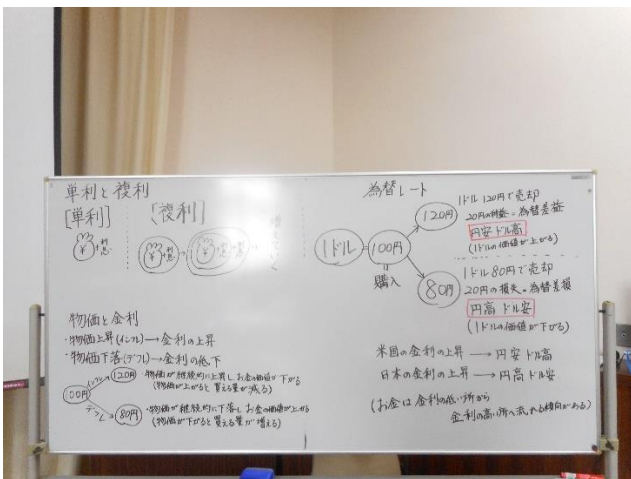 単利と複利
[単利] [複利]
¥ +利息
¥ +利息 +利息 +利息
物価と金利
・物価上昇(インフレ)→金利の上昇
・物価下落(デフレ)→金利の低下
100円
インフレ 120円 ・物価が継続的に上昇し、お金の価値が下がる
(物価が上がると買える量が減る)
デフレ 80円 ・物価が継続的に下落し、お金の価値が上がる
(物価が下がると買える量が増える)
為替レート
1ドル = 100円
購入
120円
1ドル120円で売却
20円の利益=為替差益
円安ドル高
(1ドルの価値が上がる)
80円
1ドル80円で売却
20円の損失=為替差損
円高ドル安
(1ドルの価値が下がる)
米国の金利の上昇 → 円安ドル高
日本の金利の上昇 → 円高ドル安
(お金は金利の低い所から
金利の高い所へ流れる傾向がある)